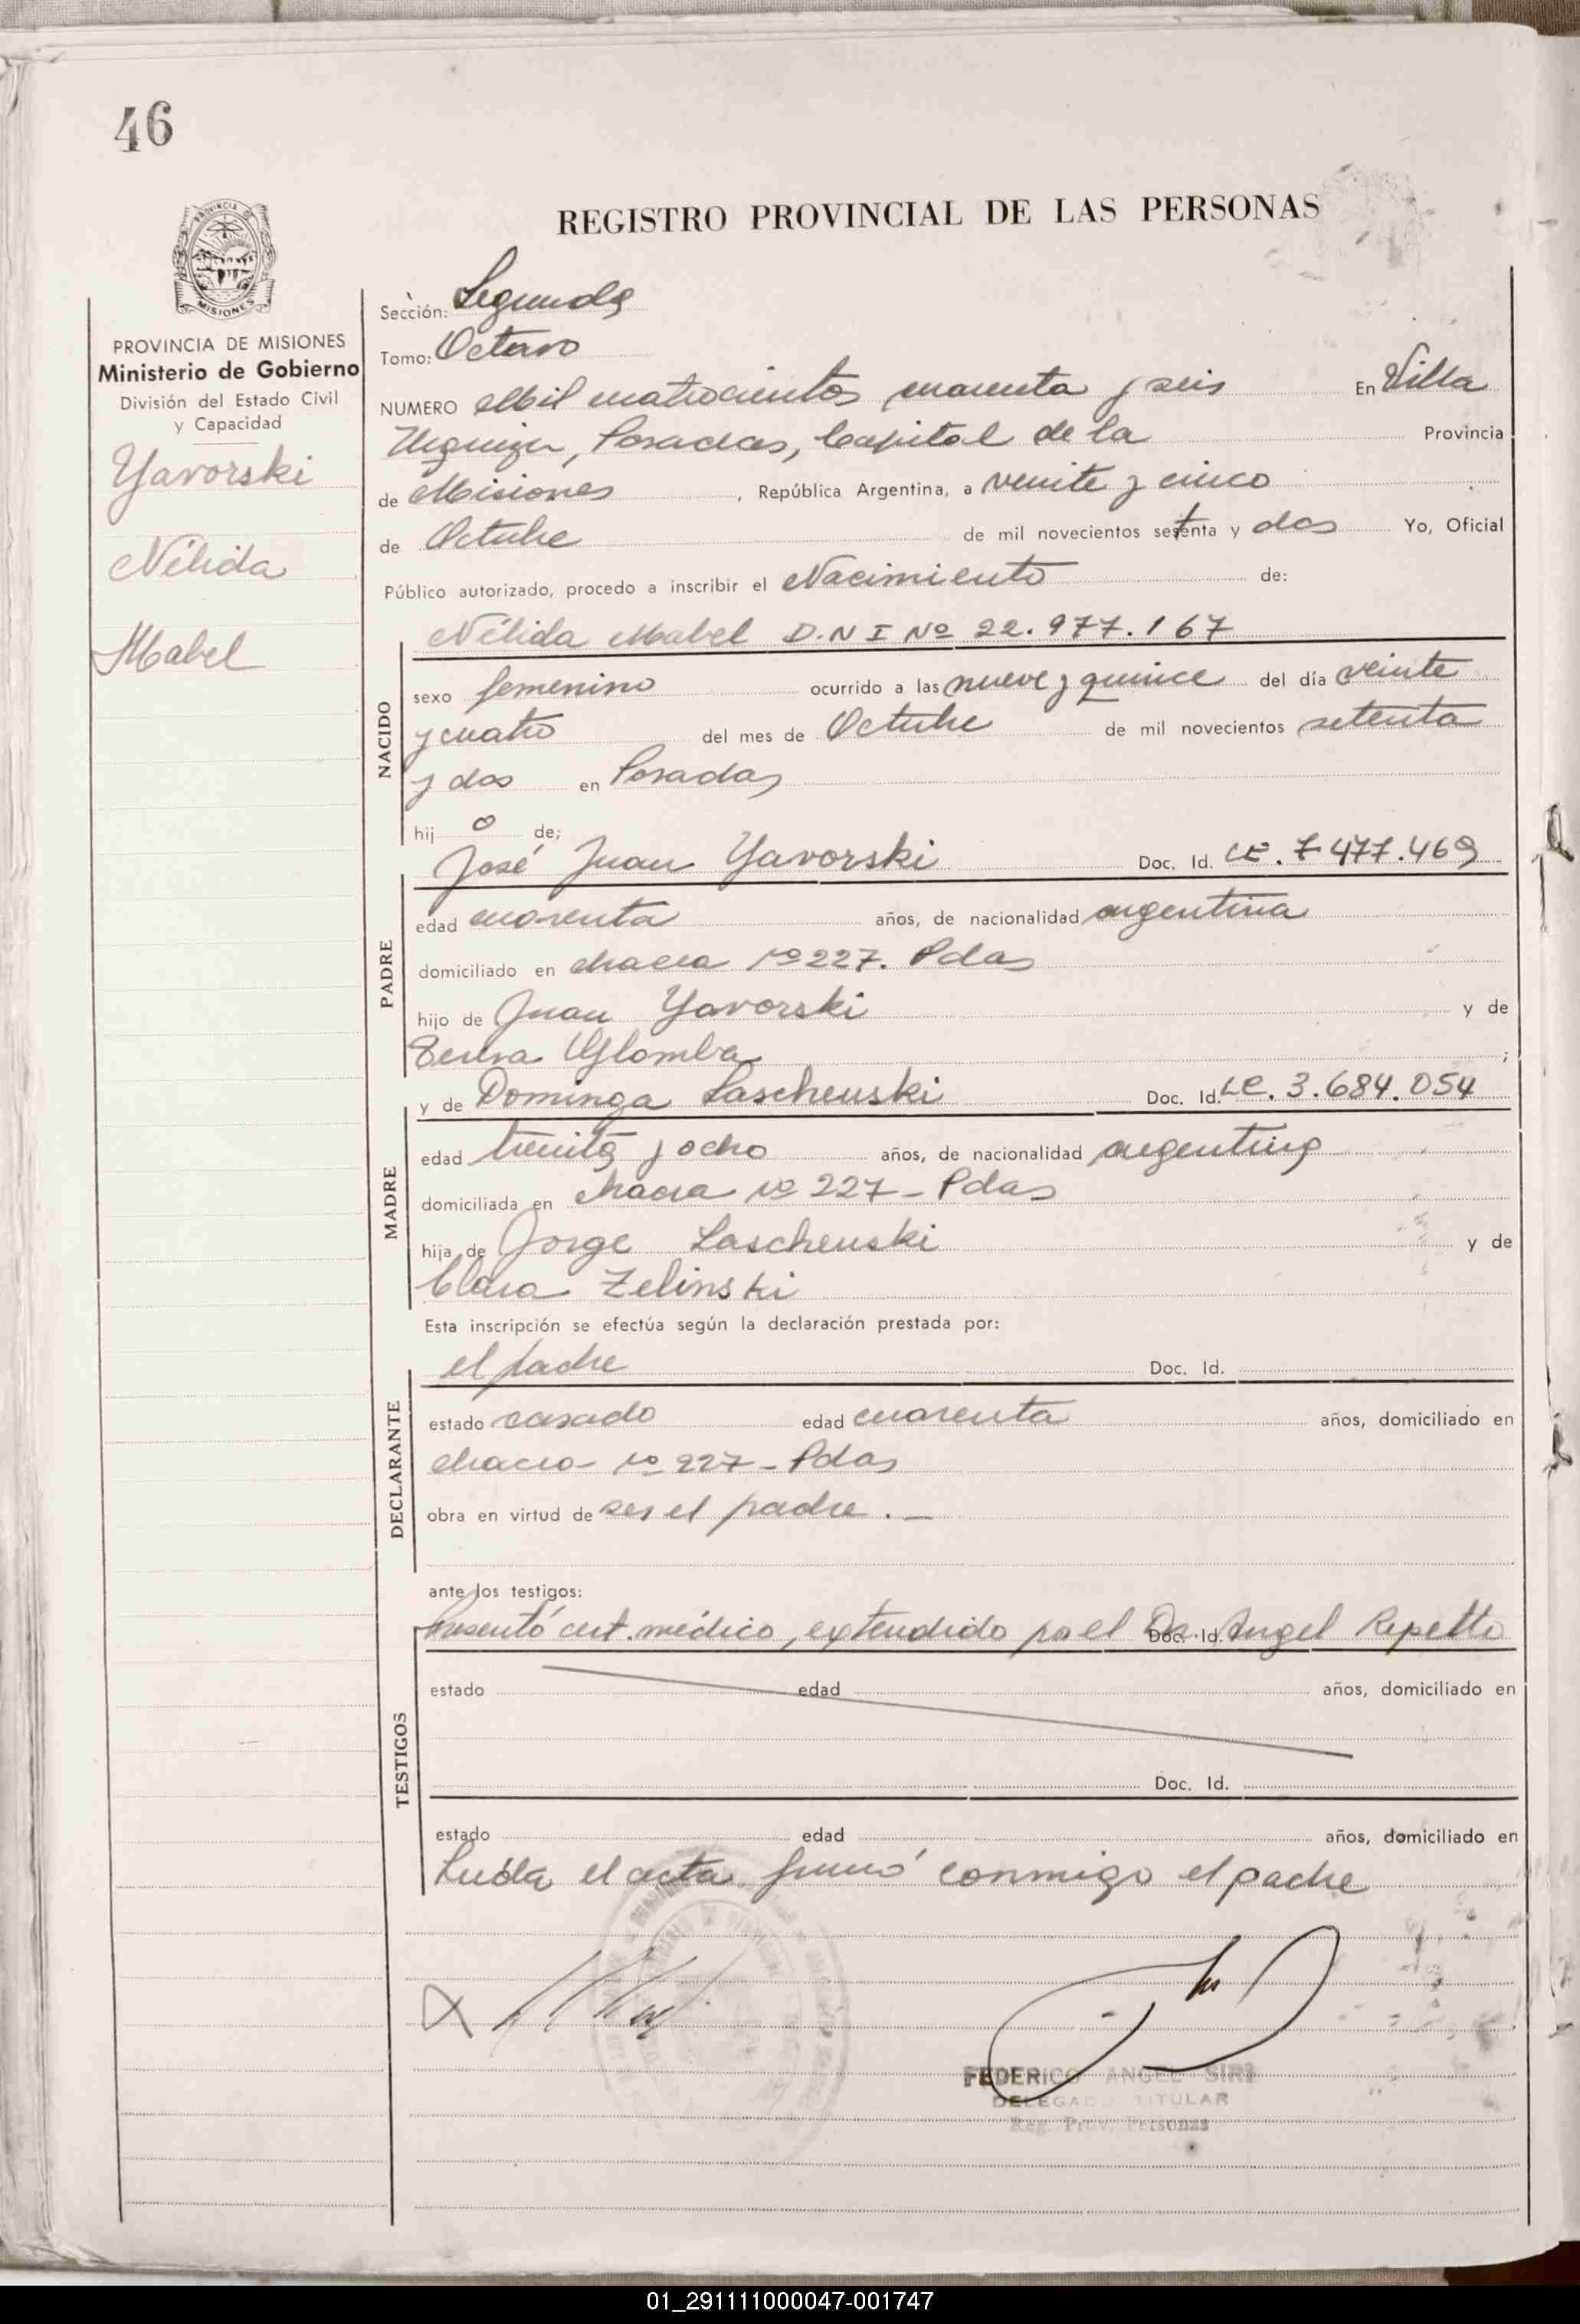 46
PROVINCIA DE
MISIONES
REGISTRO PROVINCIAL DE LAS PERSONAS
PROVINCIA DE MISIONES
Ministerio de Gobierno
División del Estado Civil
y Capacidad
Yavorski
Nélida
Mabel
Sección: Segunda
Tomo: Octavo
NUMERO Mil cuatrocientos cuarenta y seis En Villa
Urquiza, Posadas, Capital de la Provincia
de Misiones, República Argentina, a veinte y cinco
de Octubre de mil novecientos setenta y dos Yo, Oficial
Público autorizado, procedo a inscribir el Nacimiento de:
Nélida Mabel D.N I Nº 22.977.167
NACIDO
sexo femenino ocurrido a las nueve y quince del día veinte
y cuatro del mes de Octubre de mil novecientos setenta
y dos en Posadas
hij o de;
José Juan Yavorski Doc. Id. LE. 7477.469
PADRE
edad cuarenta años, de nacionalidad argentina
domiciliado en chacra Nº 227. Pdas
hijo de Juan Yavorski y de
Glomba;
y de Dominga Laschenski Doc. Id. LC. 3.684.054
MADRE
edad treinta y ocho años, de nacionalidad argentina
domiciliada en chacra Nº 227 - Pdas
hija de Jorge Laschenski y de
Clara Zelinski
Esta inscripción se efectúa según la declaración prestada por:
el padre Doc. Id.
DECLARANTE
estado casado edad cuarenta años, domiciliado en
chacra Nº 227 - Pdas
obra en virtud de ser el padre . _
ante los testigos:
TESTIGOS
Presentó cert. médico, extendido por el Dr. Doc. Id. Angel Repetto
estado edad años, domiciliado en
Doc. Id.
estado edad años, domiciliado en
Leída el acta firmó conmigo el padre
FEDERICO ANGEL SIRI
DELEGADO TITULAR
Reg. Prov. Personas
01_291111000047-001747